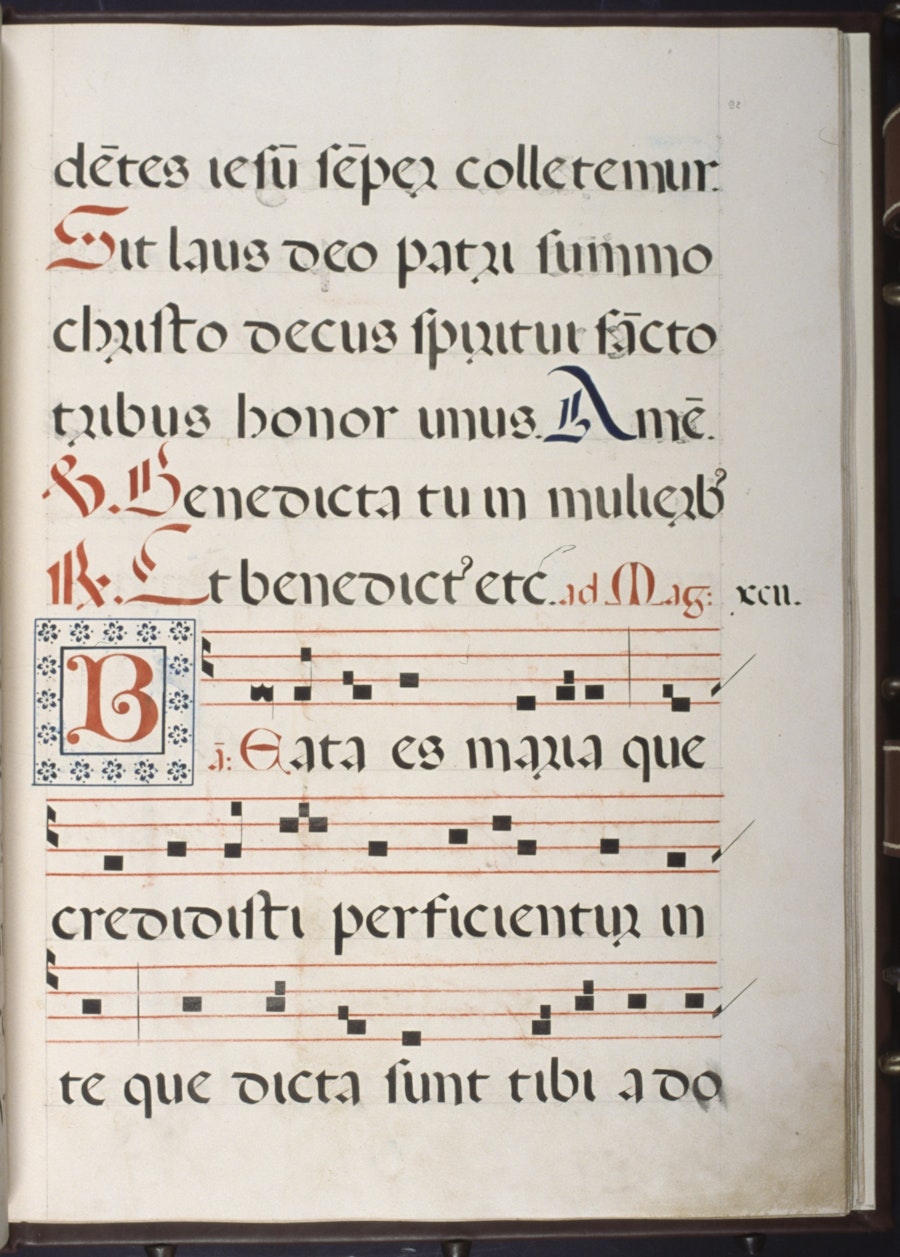 22
dētes iesū sēper colletemur.
Sit laus deo patri summo
christo decus spiritui sācto
tribus honor unus. Amē.
℣. Benedicta tu in mulierbꝰ
℟. Et benedictꝰ etc. ad Mag: xcii.
B
ā: Eata es maria que
credidisti perficientur in
te que dicta sunt tibi a do